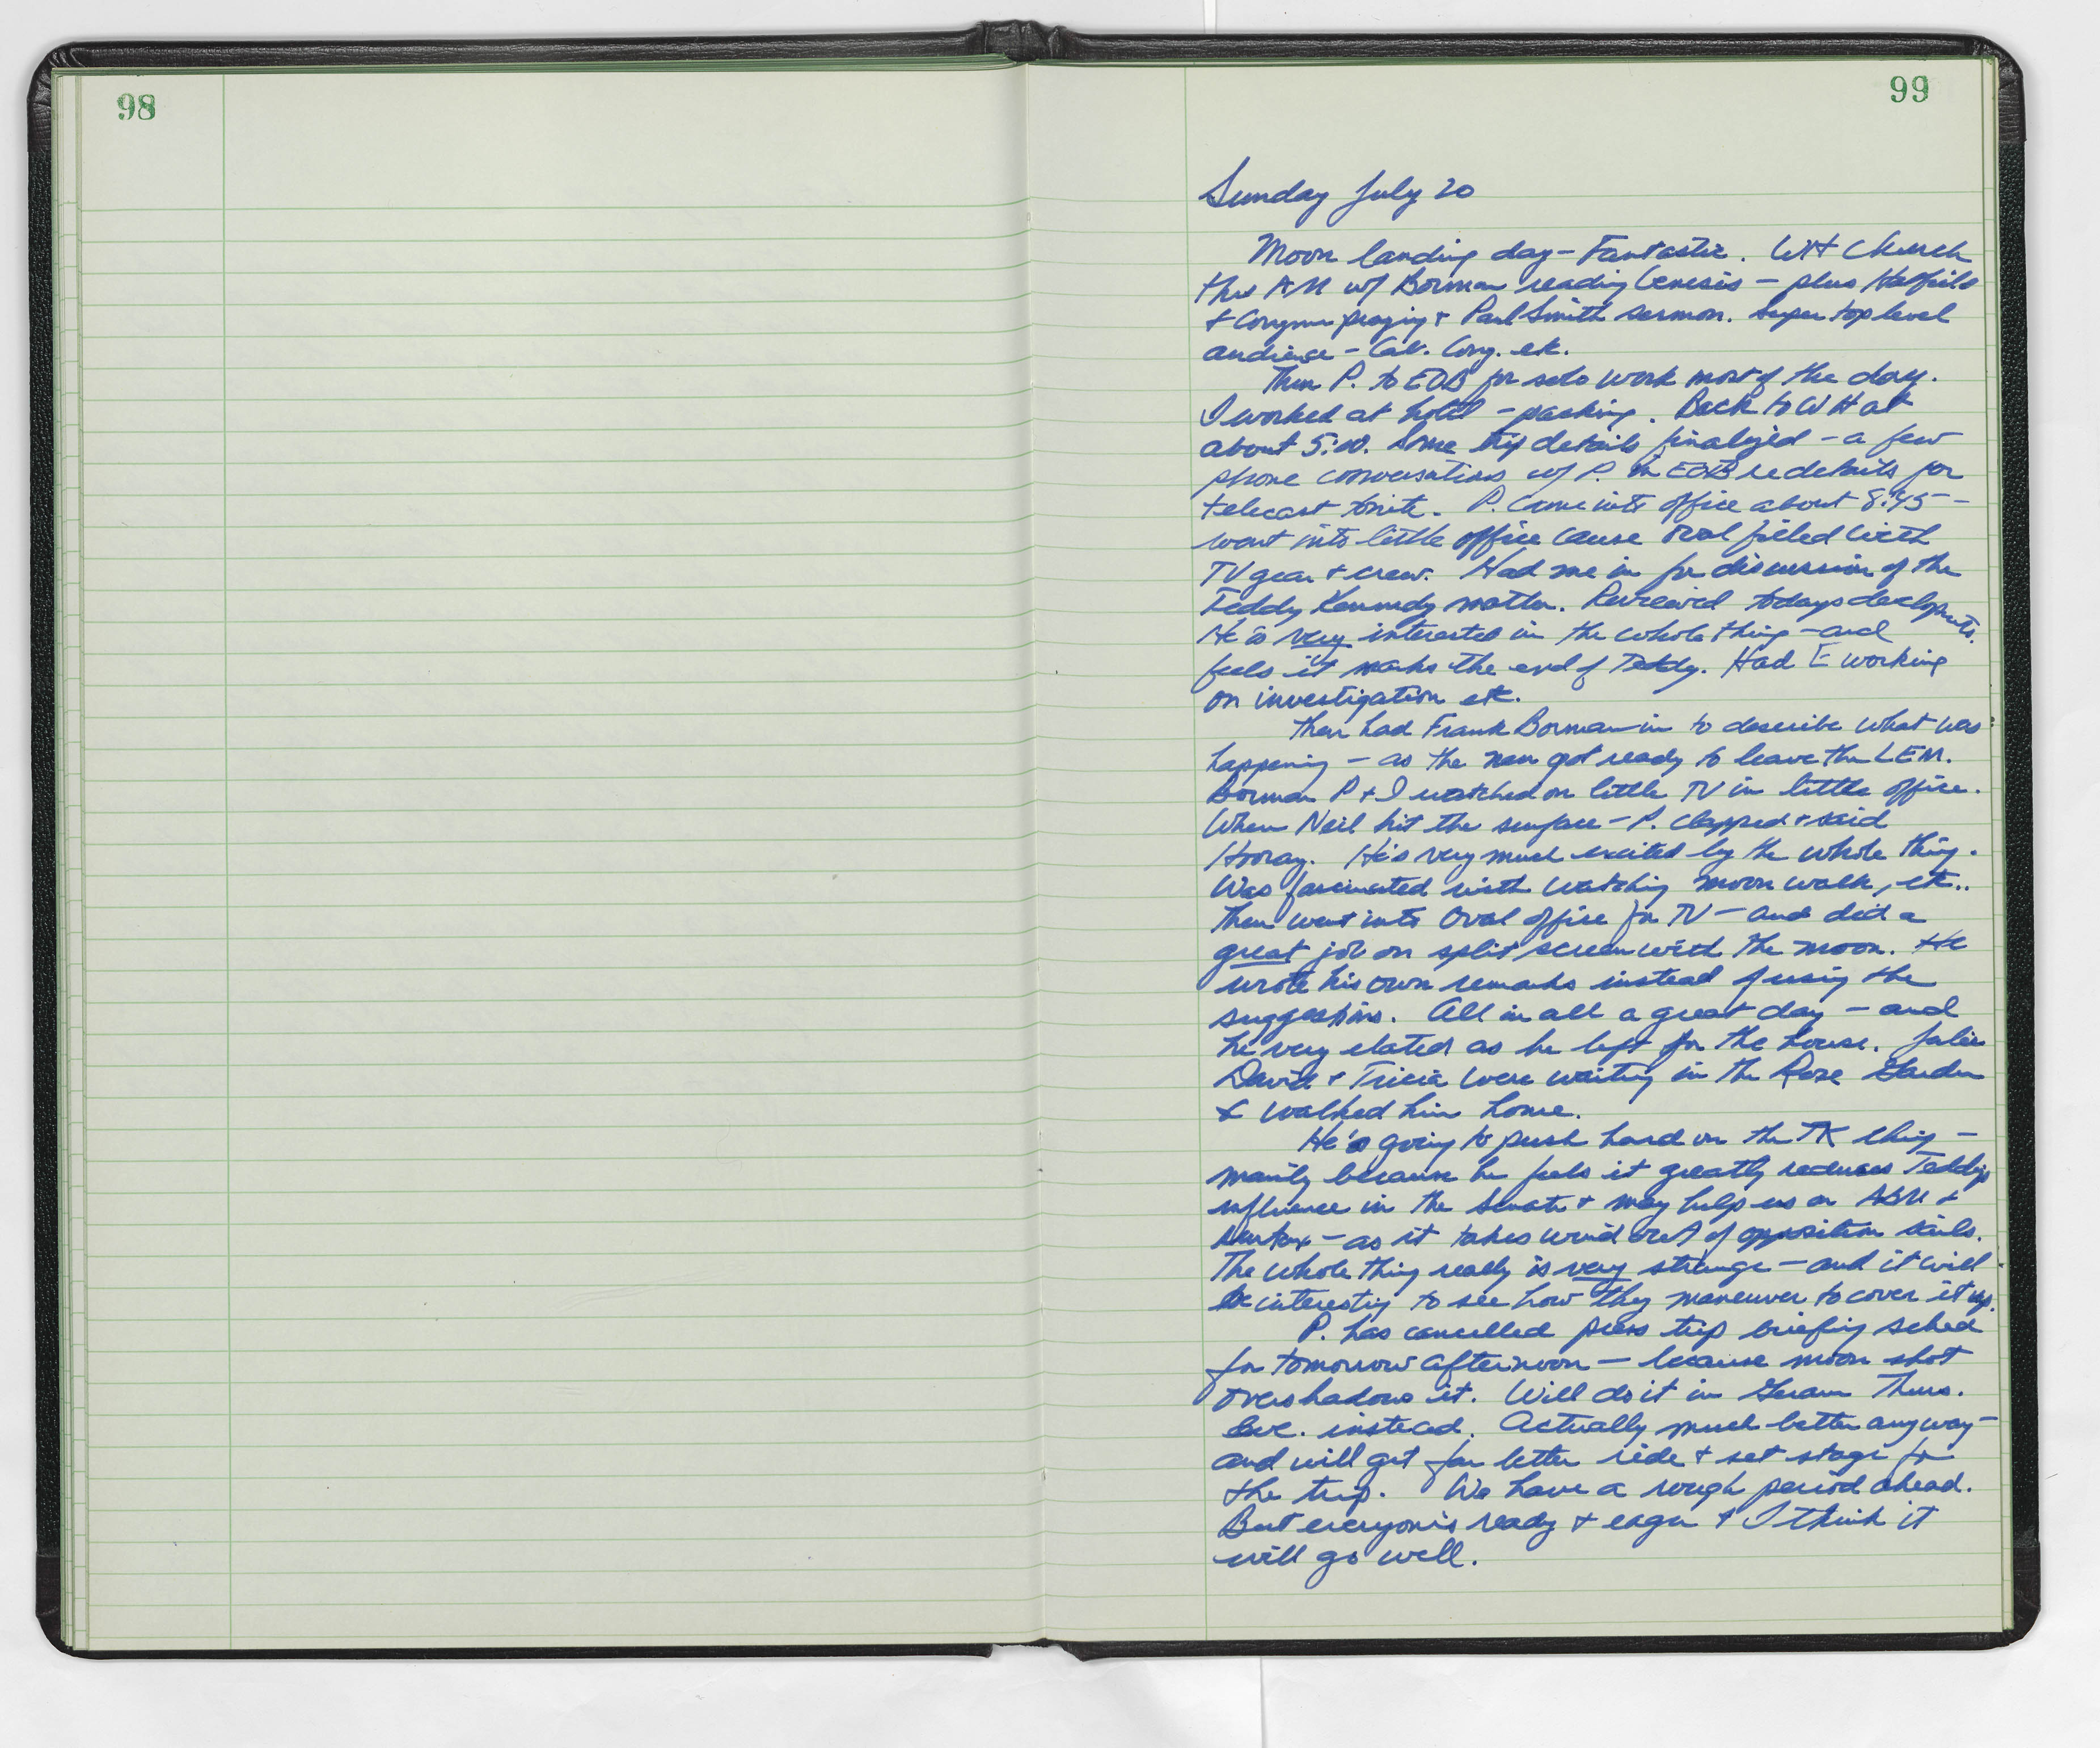 98
99
Sunday July 20
Moon landing day - Fantastic. WH Church
this AM w/ Borman reading Genesis - plus Hatfield
& Congmn praying & Paul Smith sermon. Super top level
audience - Cab. Cong. etc.
Then P. to EOB for solo work most of the day.
I worked at hotel - packing. Back to WH at
about 5:00. Some trip details finalized - a few
phone conversations w/ P. in EOB re details for
telecast tonite. P. came into office about 8:45 -
went into little office cause oval filled with
TV gear & crew. Had me in for discussion of the
Teddy Kennedy matter. Reviewed todays developmts.
He is very interested in the whole thing - and
feels it marks the end of Teddy. Had E working
on investigation etc.
Then had Frank Borman in to describe what was
happening - as the men got ready to leave the LEM.
Borman P & I watched on little TV in little office.
When Neil hit the surface - P. clapped & said
Hooray. He's very much excited by the whole thing.
Was fascinated with watching moon walk, etc..
Then went into Oval office for TV - and did a
great job on split screen with the moon. He
wrote his own remarks instead of using the
suggestions. All in all a great day - and
he very elated as he left for the house. Julie
David & Tricia were waiting in the Rose Garden
& walked him home.
He's going to push hard on the TK thing -
mainly because he feels it greatly reduces Teddys
influence in the Senate & may help us on ABM &
surtax - as it takes wind out of opposition sails.
The whole thing really is very strange - and it will
be interesting to see how they maneuver to cover it up.
P. has cancelled press trip briefing sched
for tomorrow afternoon - because moon shot
overshadows it. Will do it in Guam Thurs.
eve. instead. Actually much better anyway -
and will get far better ride & set stage for
the trip. We have a rough period ahead.
But everyone's ready & eager & I think it
will go well.